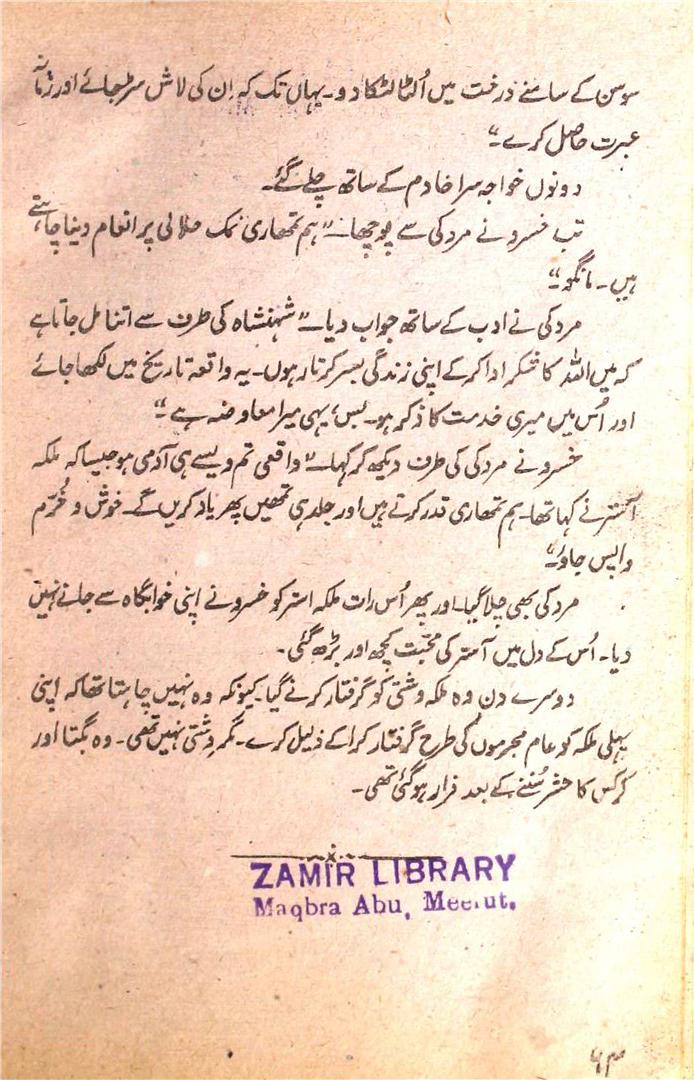 سوسن کے سامنے درخت میں اُلٹا لٹکا دو۔ یہاں تک کہ اِن کی لاش سڑ جائے اور زمانہ
عبرت حاصل کرے۔“
دونوں خواجہ سرا خادم کے ساتھ چلے گئے۔
تب خسرو نے مردکی سے پوچھا۔ ”ہم تمھاری نمک حلالی پر انعام دینا چاہتے
ہیں۔ مانگو۔“
مردکی نے ادب کے ساتھ جواب دیا۔ ”شہنشاہ کی طرف سے اتنا مل جاتا ہے
کہ میں اللہ کا شکر ادا کر کے اپنی زندگی بسر کرتا رہوں۔ یہ واقعہ تاریخ میں لکھا جائے
اور اُس میں میری خدمت کا ذکر ہو۔ بس، یہی میرا معاوضہ ہے۔“
خسرو نے مردکی کی طرف دیکھ کر کہا۔ ”واقعی تم ویسے ہی آدمی ہو جیسا کہ ملکہ
آستر نے کہا تھا۔ ہم تمھاری قدر کرتے ہیں اور جلد ہی تمھیں پھر یاد کریں گے۔ خوش و خُرّم
واپس جاؤ۔“
مردکی بھی چلا گیا۔ اور پھر اُس رات ملکہ استر کو خسرو نے اپنی خوابگاہ سے جانے نہیں
دیا۔ اُس کے دل میں آستر کی محبّت کچھ اور بڑھ گئی۔
دوسرے دن وہ ملکہ وشتی کو گرفتار کرنے گیا۔ کیونکہ وہ نہیں چاہتا تھا کہ اپنی
پہلی ملکہ کو عام مجرموں کی طرح گرفتار کرا کے ذلیل کرے۔ مگر وشتی نہیں تھی۔ وہ بگتا اور
کرکس کا حشر سُننے کے بعد فرار ہو گئی تھی۔
ZAMIR LIBRARY
Maqbra Abu, Meerut.